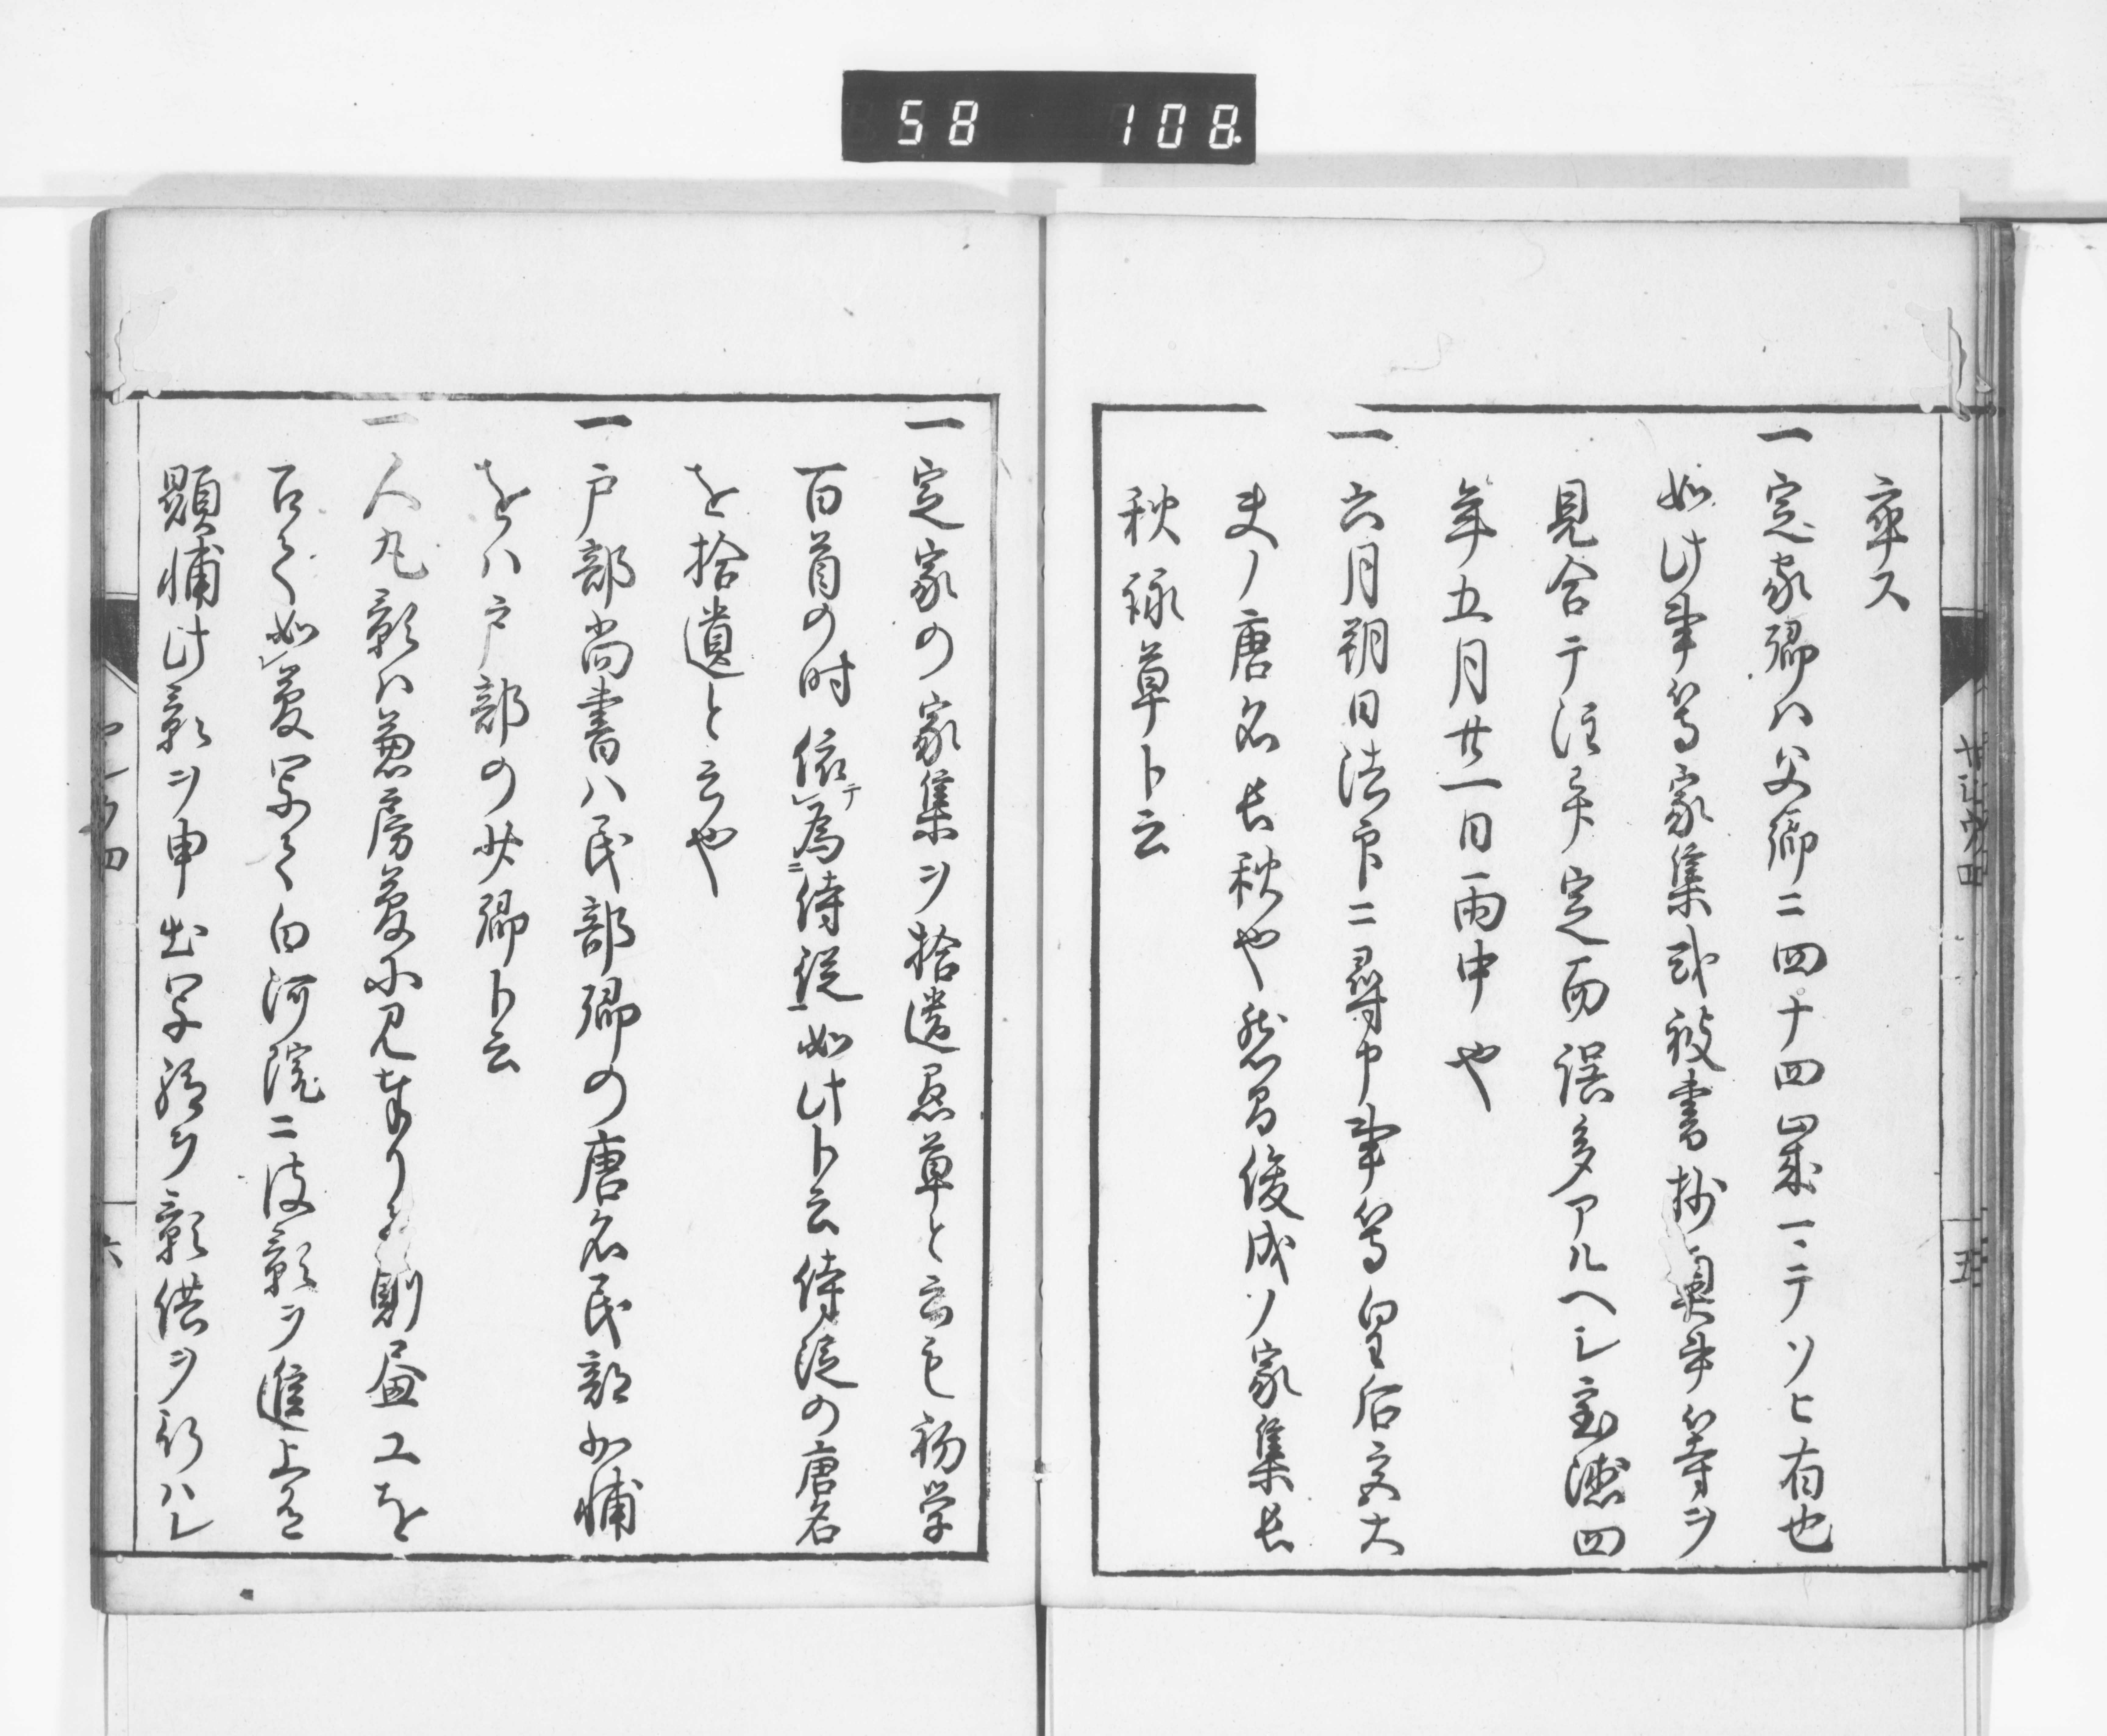 58 108
卒ス
一定家卿ハ父卿ニ四十四歳ニテソヒ有也
如此事等家集或被書抄奥書等ヲ
見合テ注畢定而誤多アルヘシ宝徳四
年五月廿一日雨中也
一六月朔日法印ニ尋申事等皇后宮大
夫ノ唐名長秋也然間俊成ノ家集長
秋詠草ト云
一定家の家集ヲ拾遺愚草と云も初学
百首の時依テ為ニ侍従如此ト云侍従の唐名
を拾遺と云也
一戸部尚書ハ民部卿の唐名民部少輔
をハ戸部の少卿ト云
一人丸影ハ兼房夢に見奉りて則畫工を
召て如夢写て白河院ニ彼影ヲ進上了
顕輔此影ヲ申出写給ヲ影供ヲ行ハレ
五
六